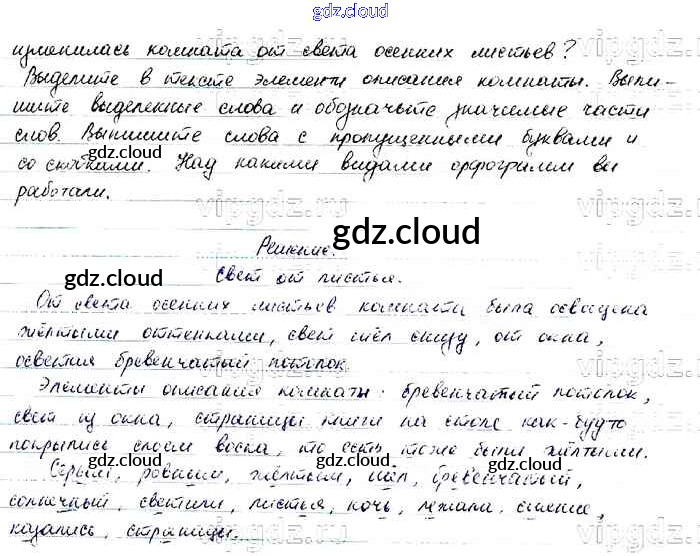 gdz.cloud
изменилась комната от света осенних листьев?
Выделите в тексте элементы описания комнаты. Выпи-
шите выделенные слова и обозначьте значимые части
слов. Выпишите слова с пропущенными буквами и
со скобками. Над какими видами орфограмм вы
работали.
Решение.
Свет от листьев.
От света осенних листьев комната была освещена
жёлтыми оттенками, свет шёл снизу, от окна,
осветил бревенчатый потолок.
Элементы описания комнаты: бревенчатый потолок,
свет из окна, страницы книги на столе как-будто
покрылись слоем воска, то есть тоже были жёлтыми.
Серый, ровным, жёлтым, шёл, бревенчатый,
солнечный, светили, листья, ночь, лежала, сияние,
казались, страницы.
gdz.cloud
gdz.cloud
gdz.cloud
gdz.cloud
gdz.cloud
gdz.cloud
vipgdz.ru
vipgdz.ru
vipgdz.ru
vipgdz.ru